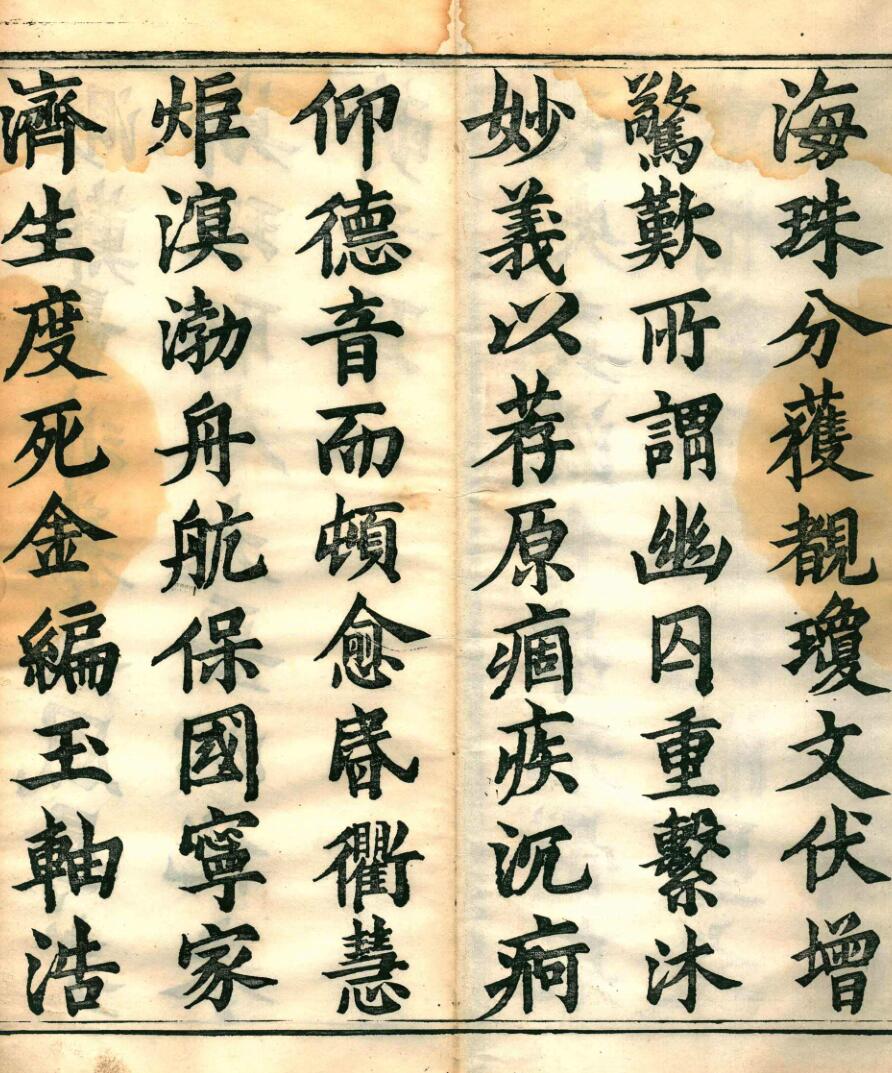 海珠分獲覩瓊文伏增
驚歎所謂幽囚重繫沐
妙義以荐原痼疾沉痾
仰德音而頓愈昬衢慧
炬溟渤舟航保國寧家
濟生度死金編玉軸浩